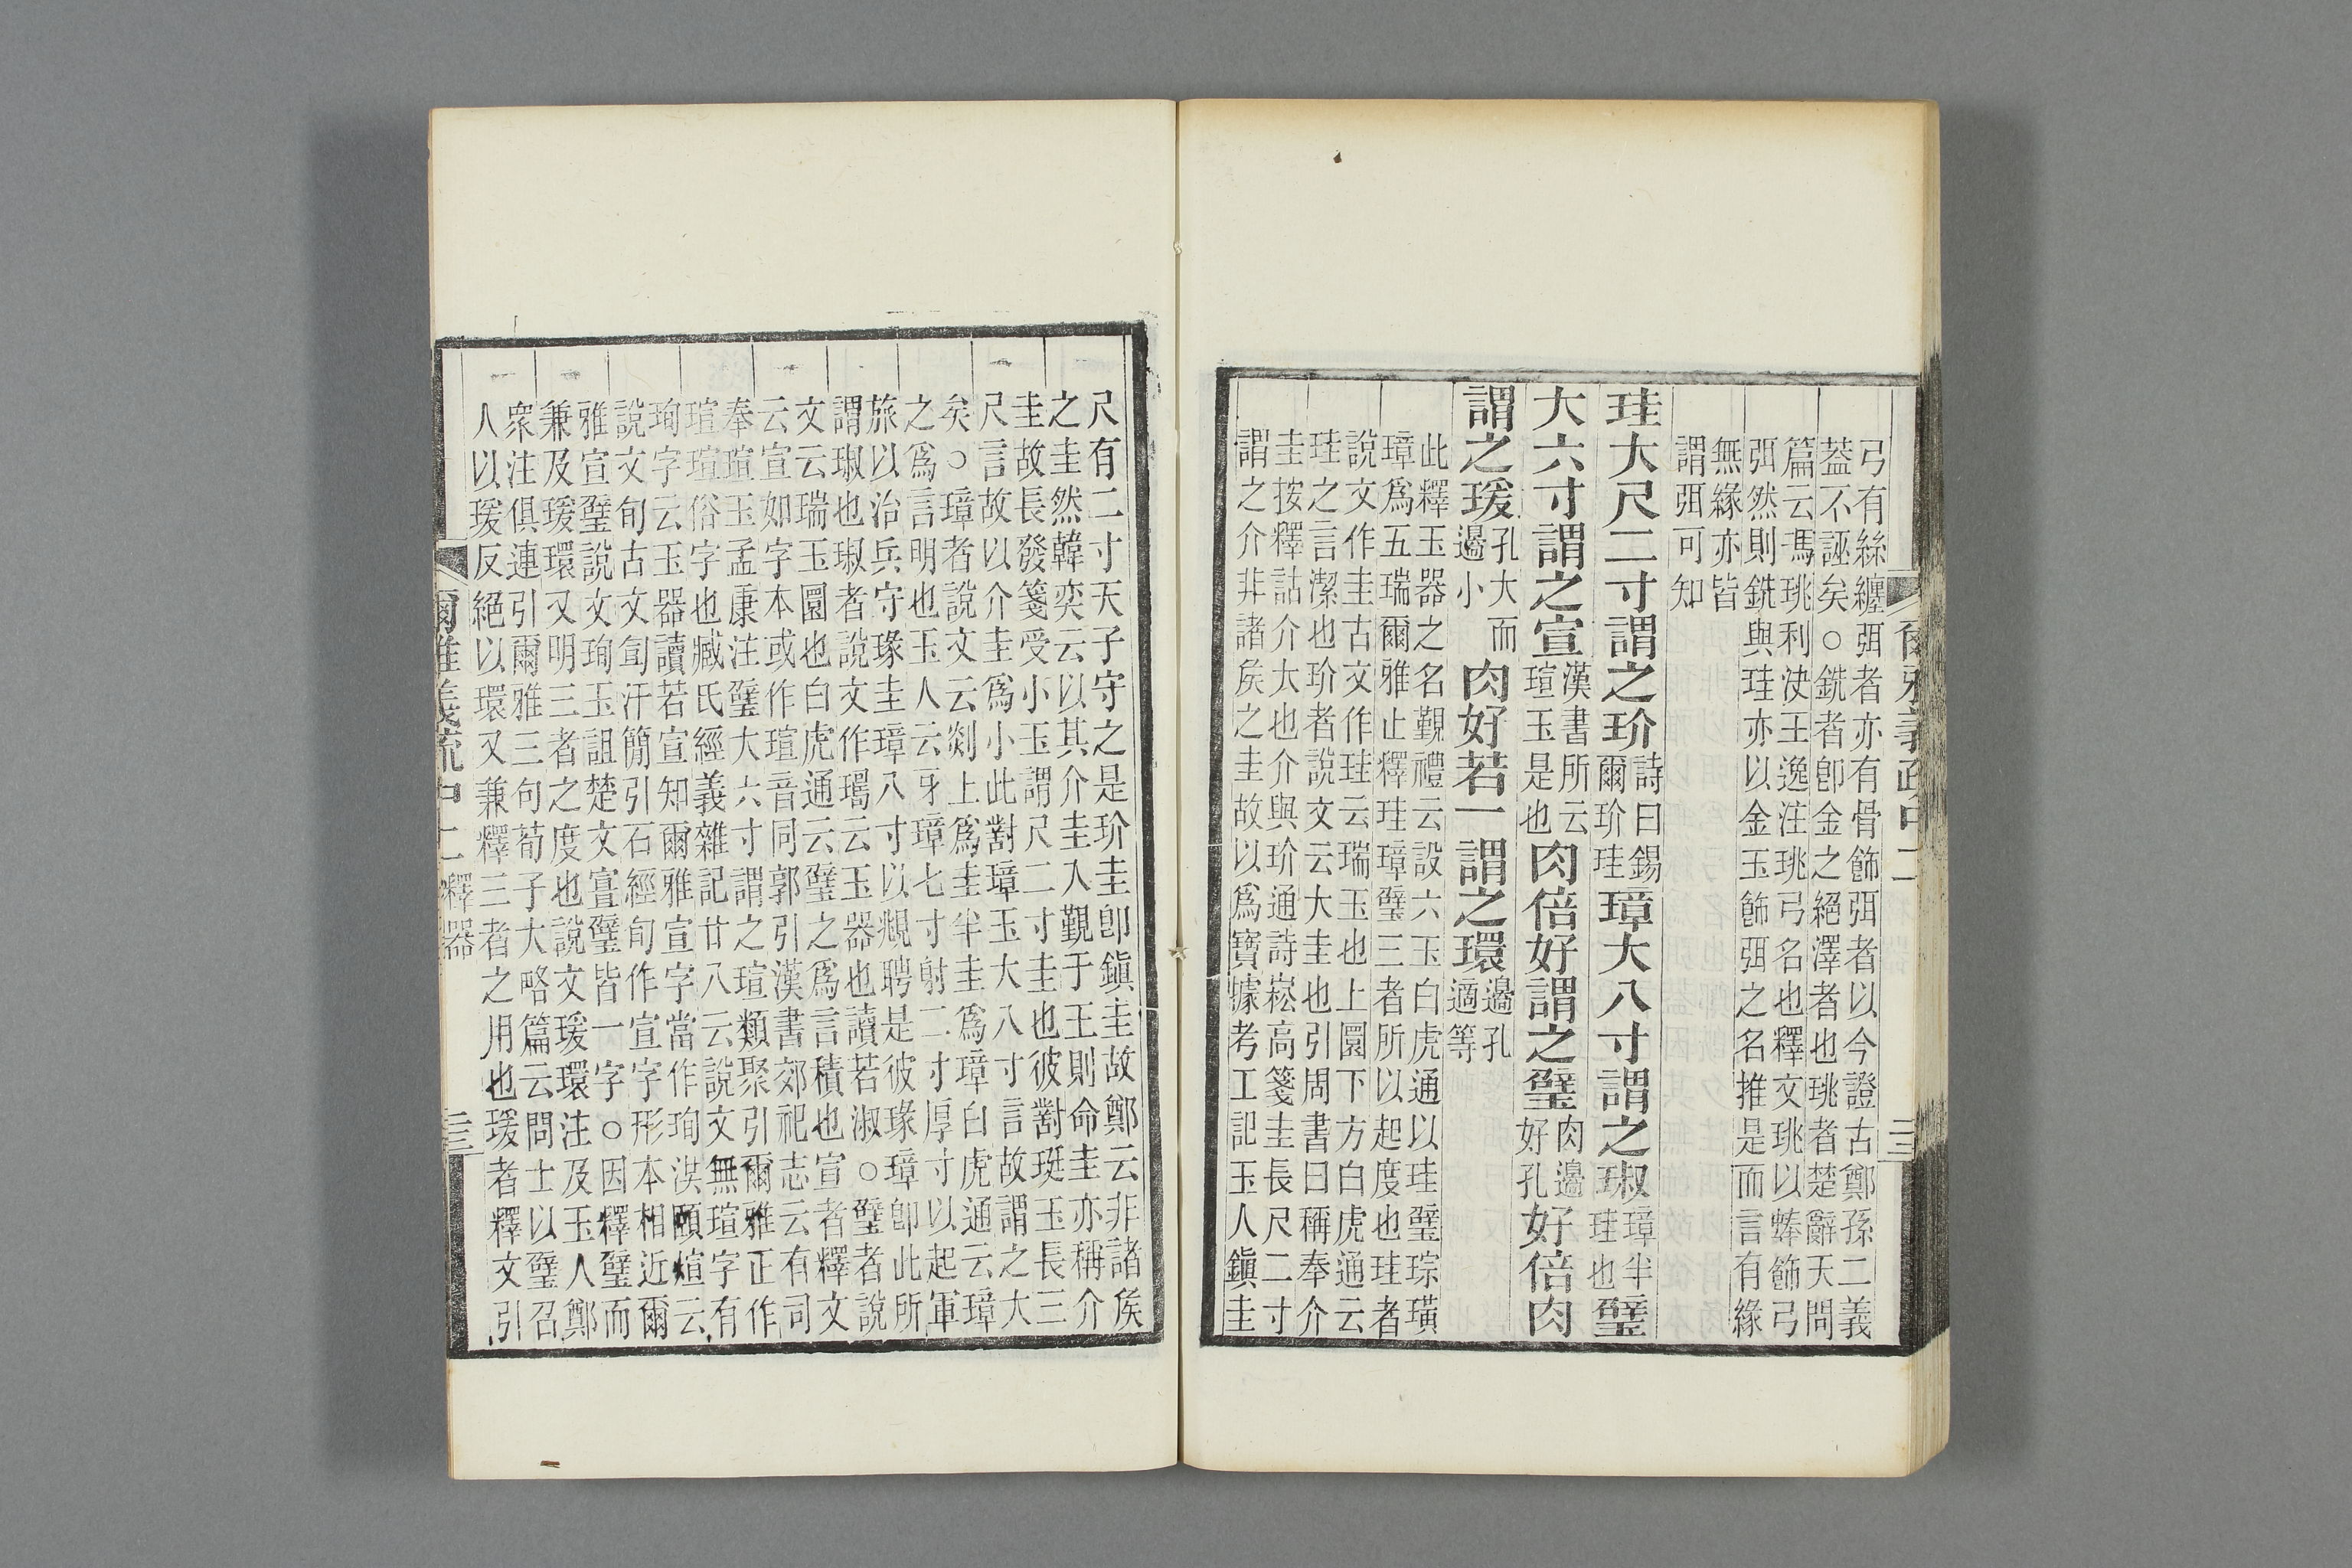 爾雅義疏中二
三三
弓有絲纏弭者亦有骨飾弭者以今證古鄭孫二義
葢不誣矣○銑者卽金之絕澤者也珧者楚辭天問
篇云馮珧利決王逸注珧弓名也釋文珧以蜯飾弓
弭然則銑與珪亦以金玉飾弭之名推是而言有緣
無緣亦皆
謂弭可知
珪大尺二寸謂之玠詩曰錫爾玠珪璋大八寸謂之琡璋半珪也璧
大六寸謂之宣漢書所云瑄玉是也肉倍好謂之璧肉邊好孔好倍肉
謂之瑗孔大而邊小肉好若一謂之環邊孔適等
此釋玉器之名覲禮云設六玉白虎通以珪璧琮璜
璋爲五瑞爾雅止釋珪璋璧三者所以起度也珪者
說文作圭古文作珪云瑞玉也上圜下方白虎通云
珪之言潔也玠者說文云大圭也引周書曰稱奉介
圭按釋詁介大也介與玠通詩崧高箋圭長尺二寸
謂之介非諸矦之圭故以爲寶據考工記玉人鎭圭
尺有二寸天子守之是玠圭卽鎭圭故鄭云非諸矦
之圭然韓奕云以其介圭入覲于王則命圭亦稱介
圭故長發箋受小玉謂尺二寸圭也彼對珽玉長三
尺言故以介圭爲小此對璋玉大八寸言故謂之大
矣○璋者說文云剡上爲圭半圭爲璋白虎通云璋
之爲言明也玉人云牙璋七寸射二寸厚寸以起軍
旅以治兵守瑑圭璋八寸以覜聘是彼瑑璋卽此所
謂琡也琡者說文作璹云玉器也讀若淑○璧者說
文云瑞玉圜也白虎通云璧之爲言積也宣者釋文
云宣如字本或作瑄音同郭引漢書郊祀志云有司
奉瑄玉孟康注璧大六寸謂之瑄類聚引爾雅正作
瑄瑄俗字也臧氏經義雜記廿八云說文無瑄字有
珣字云玉器讀若宣知爾雅宣字當作珣洪頤煊云
說文旬古文㫬汗簡引石經旬作宣字形本相近爾
雅宣璧說文珣玉詛楚文亶璧皆一字○因釋璧而
兼及瑗環又明三者之度也說文瑗環注及玉人鄭
衆注俱連引爾雅三句荀子大略篇云問士以璧召
人以瑗反絕以環又兼釋三者之用也瑗者釋文引
爾雅義疏中二釋器
三三